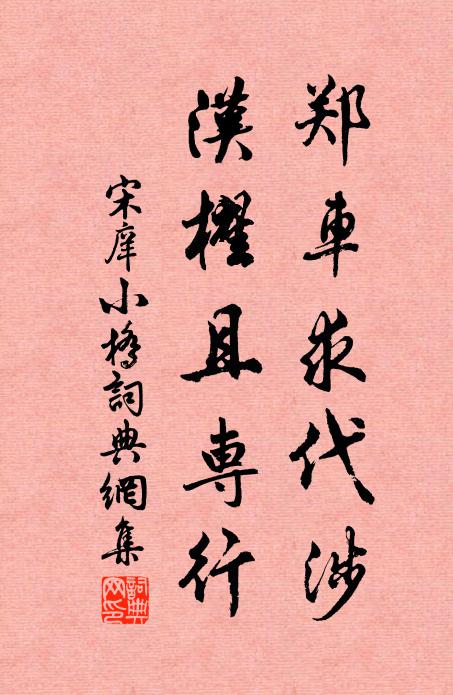 郑車求代涉
漢櫂且専行
宋庠小橋詞典網集
詞典网印